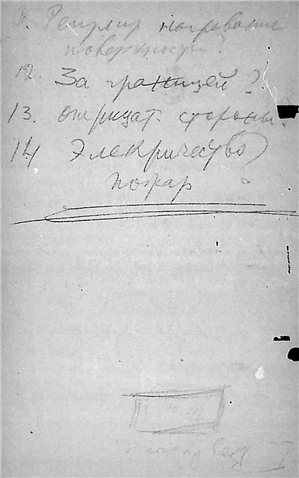 11. Регулир нагревание
поверхности?
12. За границей?
13. отрицат. стороны.
14 Электричество
пожар